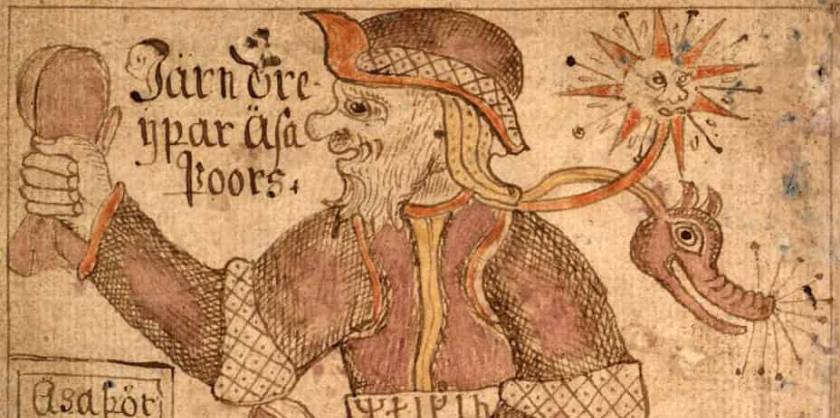 Järn dre-
ypar Asa
Þoors.
Asaþór